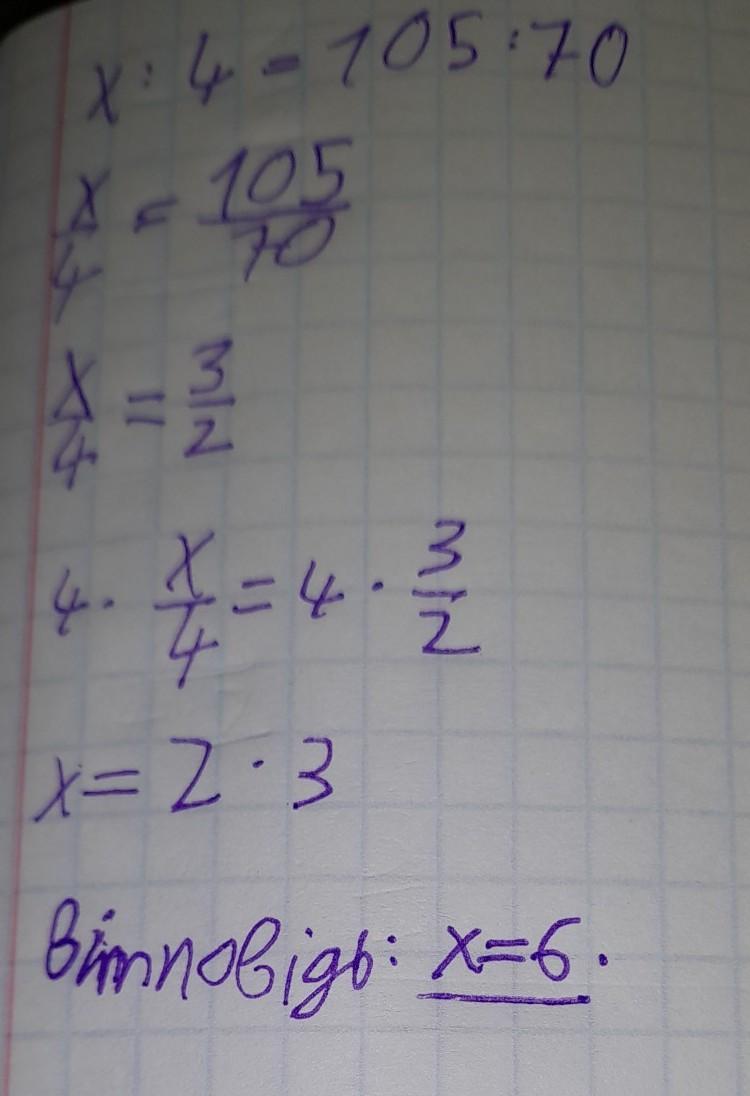 x : 4 = 105 : 70
x/4 = 105/70
x/4 = 3/2
4 · x/4 = 4 · 3/2
x = 2 · 3
Вітповідь: x=6.